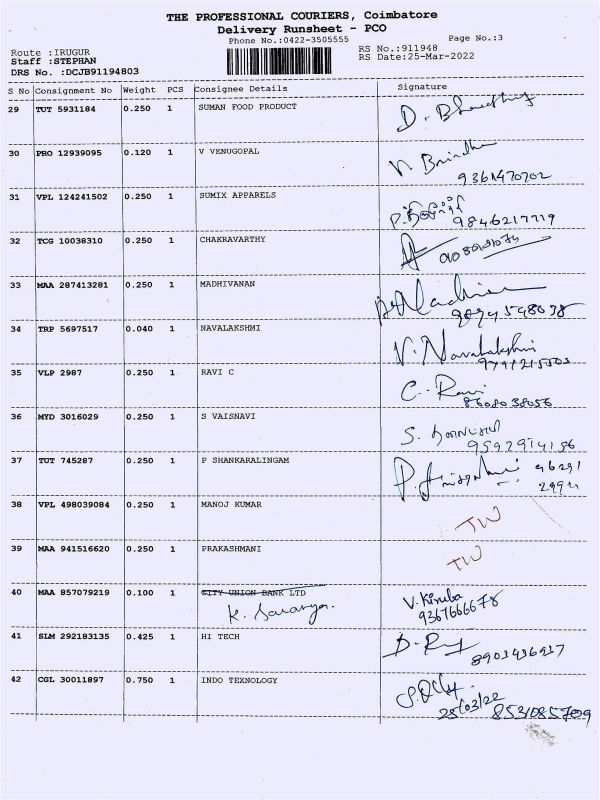 THE PROFESSIONAL COURIERS, Coimbatore
Delivery Runsheet - PCO
Phone No.:0422-3505555
Page No.:3
Route :IRUGUR
Staff :STEPHAN
DRS No. :DCJB91194803
RS No.:911948
RS Date:25-Mar-2022
S No Consignment No Weight PCS Consignee Details Signature
29 TUT 5931184 0.250 1 SUMAN FOOD PRODUCT
30 PRO 12939095 0.120 1 V VENUGOPAL
9361470702
31 VPL 124241502 0.250 1 SUMIX APPARELS
9846217719
32 TCG 10038310 0.250 1 CHAKRAVARTHY
33 MAA 287413281 0.250 1 MADHIVANAN
34 TRP 5697517 0.040 1 NAVALAKSHMI V. Navalakshmi
35 VLP 2987 0.250 1 RAVI C C. Ravi
8608038056
36 MYD 3016029 0.250 1 S VAISNAVI S.
37 TUT 745287 0.250 1 P SHANKARALINGAM
38 VPL 498039084 0.250 1 MANOJ KUMAR TW
39 MAA 941516620 0.250 1 PRAKASHMANI TW
40 MAA 857079219 0.100 1 CITY UNION BANK LTD V. Kiruba
K. Saranya. 9367666678
41 SLM 292183135 0.425 1 HI TECH
8903436937
42 CGL 30011897 0.750 1 INDO TEXNOLOGY
25/03/22 8531085709